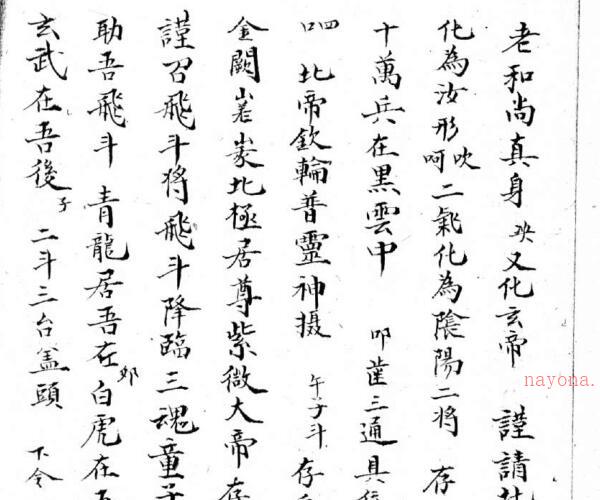 老和尚真身 又化玄帝 謹請
化為汝形 吹呵二氣化為陰陽二將 存
十萬兵在黑雲中 叩齒三通具
呬 北帝欽輪普靈神摄 午子斗 存
金闕嵳峩北極居尊紫微大帝存
謹召飛斗將飛斗降臨三魂童子
助吾飛斗 青龍居吾左 卯 白虎在吾
玄武在吾後 子 二斗三台盖頭 下令
nayona.